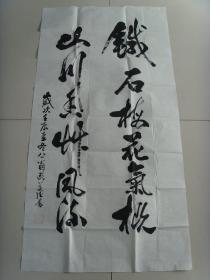 鐵石梅花氣概
山川香草風流
歲次壬辰孟冬